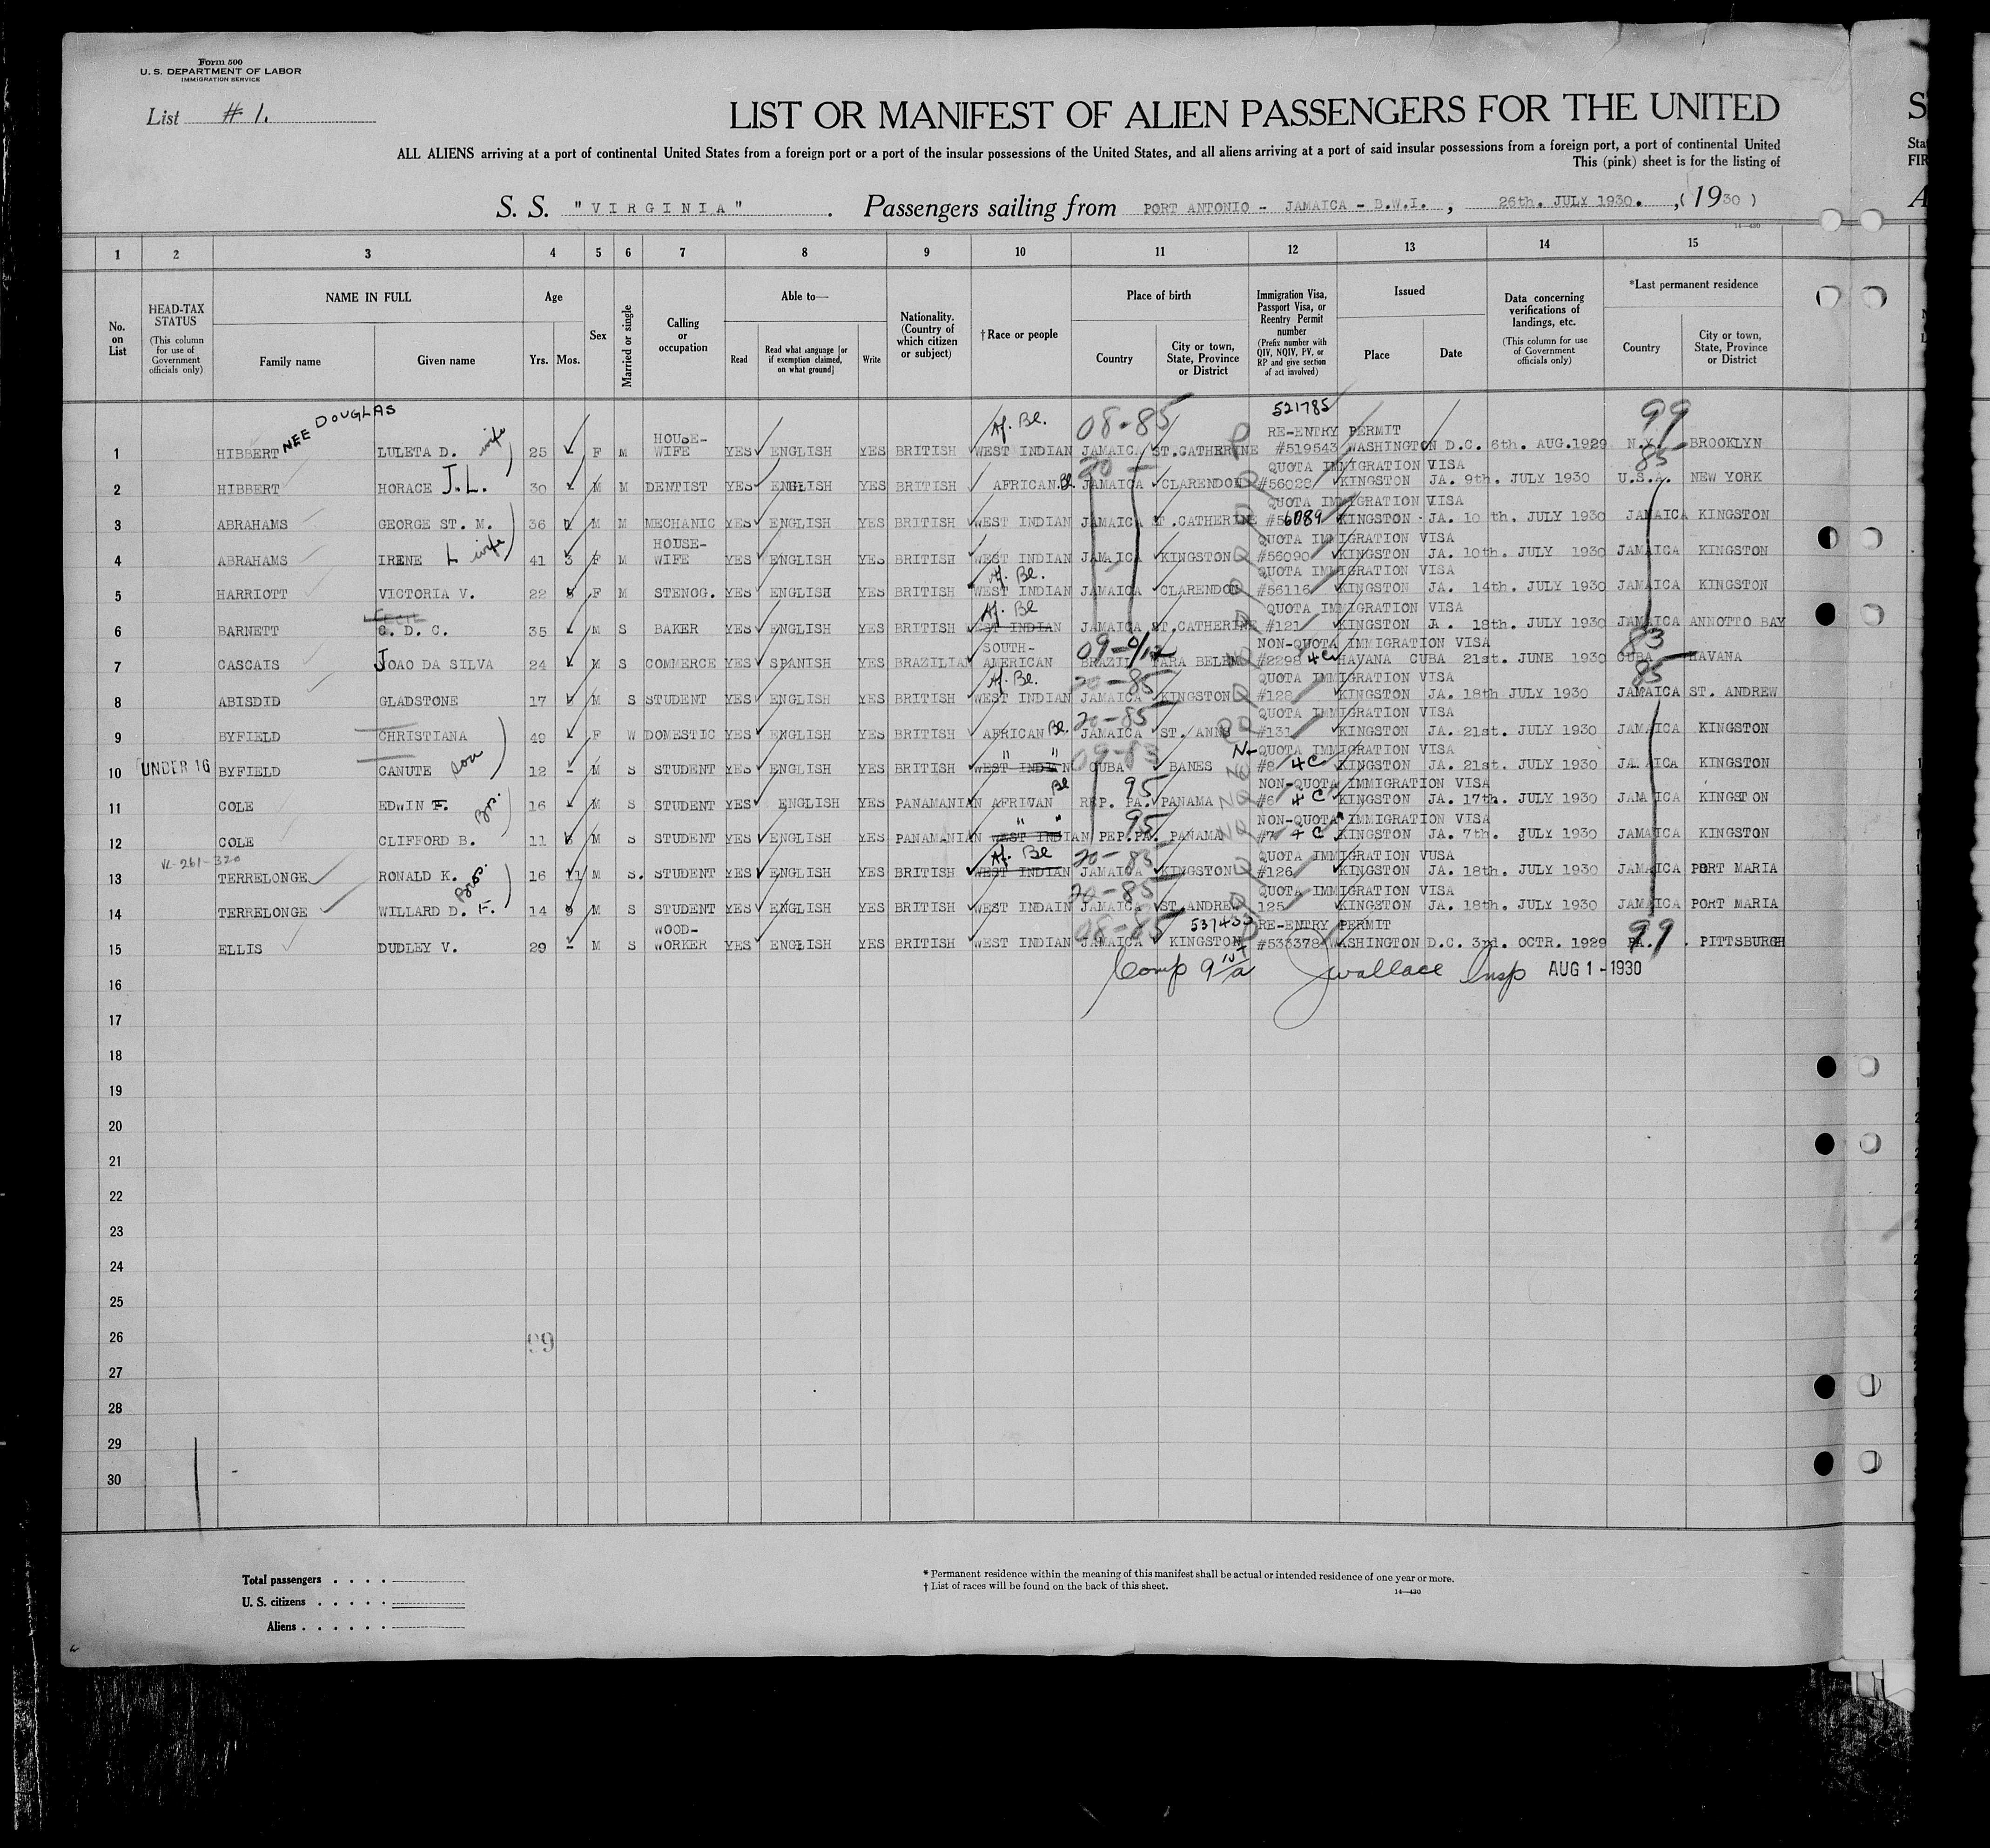 Form 500
U. S. DEPARTMENT OF LABOR
IMMIGRATION SERVICE
List # 1.
LIST OR MANIFEST OF ALIEN PASSENGERS FOR THE UNITED
ALL ALIENS arriving at a port of continental United States from a foreign port or a port of the insular possessions of the United States, and all aliens arriving at a port of said insular possessions from a foreign port, a port of continental United
This (pink) sheet is for the listing of
S. S. "VIRGINIA" . Passengers sailing from PORT ANTONIO - JAMAICA - B.W.I. , 26th. JULY 1930. ,(1930)
14—430
1 2 3 4 5 6 7 8 9 10 11 12 13 14 15
No. on List
HEAD-TAX STATUS (This column for use of Government officials only)
NAME IN FULL Family name Given name
Age Yrs. Mos.
Sex
Married or single
Calling or occupation
Able to— Read Read what language [or if exemption claimed, on what ground] Write
Nationality. (Country of which citizen or subject)
†Race or people
Place of birth Country City or town, State, Province or District
Immigration Visa, Passport Visa, or Reentry Permit number (Prefix number with QIV, NQIV, PV, or RP and give section of act involved)
Issued Place Date
Data concerning verifications of landings, etc. (This column for use of Government officials only)
*Last permanent residence Country City or town, State, Province or District
NEE DOUGLAS Af. Bl. 08-85 521785 99
1 HIBBERT LULETA D. wife 25 F M HOUSE-WIFE YES ENGLISH YES BRITISH WEST INDIAN JAMAICA ST.CATHERINE P RE-ENTRY PERMIT #519543 WASHINGTON D.C. 6th. AUG.1929 N.Y. BROOKLYN
2 HIBBERT HORACE J.L. 30 - M M DENTIST YES ENGLISH YES BRITISH AFRICAN Bl JAMAICA CLARENDON Q QUOTA IMMIGRATION VISA #56028 KINGSTON JA. 9th. JULY 1930 85 U.S.A. NEW YORK
3 ABRAHAMS GEORGE ST. M. 36 M M MECHANIC YES ENGLISH YES BRITISH WEST INDIAN JAMAICA ST.CATHERINE Q QUOTA IMMIGRATION VISA #56089 KINGSTON JA. 10 th. JULY 1930 JAMAICA KINGSTON
4 ABRAHAMS IRENE L wife 41 3 F M HOUSE-WIFE YES ENGLISH YES BRITISH WEST INDIAN JAMAICA KINGSTON Q QUOTA IMMIGRATION VISA #56090 KINGSTON JA. 10th. JULY 1930 JAMAICA KINGSTON
5 HARRIOTT VICTORIA V. 22 F M STENOG. YES ENGLISH YES BRITISH Af. Bl. WEST INDIAN JAMAICA CLARENDON Q QUOTA IMMIGRATION VISA #56116 KINGSTON JA. 14th. JULY 1930 JAMAICA KINGSTON
6 BARNETT CECIL C. D. C. 35 - M S BAKER YES ENGLISH YES BRITISH Af. Bl WEST INDIAN JAMAICA ST.CATHERINE Q QUOTA IMMIGRATION VISA #121 KINGSTON JA. 18th. JULY 1930 JAMAICA ANNOTTO BAY
7 CASCAIS JOAO DA SILVA 24 - M S COMMERCE YES SPANISH YES BRAZILIAN SOUTH-AMERICAN BRAZIL PARA BELEM NQ NON-QUOTA IMMIGRATION VISA #2298 4C HAVANA CUBA 21st. JUNE 1930 83 CUBA HAVANA
8 ABISDID GLADSTONE 17 M S STUDENT YES ENGLISH YES BRITISH Af. Bl. WEST INDIAN 20-85 JAMAICA KINGSTON Q QUOTA IMMIGRATION VISA #128 KINGSTON JA. 18th JULY 1930 85 JAMAICA ST. ANDREW
9 BYFIELD CHRISTIANA 49 - F W DOMESTIC YES ENGLISH YES BRITISH AFRICAN Bl 20-85 JAMAICA ST. ANNS Q QUOTA IMMIGRATION VISA #131 KINGSTON JA. 21st. JULY 1930 JAMAICA KINGSTON
10 UNDER 16 BYFIELD CANUTE son 12 - M S STUDENT YES ENGLISH YES BRITISH " " WEST INDIAN 09-83 CUBA BANES N- QUOTA IMMIGRATION VISA #8 4C KINGSTON JA. 21st. JULY 1930 JAMAICA KINGSTON
11 COLE EDWIN F. Bro. 16 M S STUDENT YES ENGLISH YES PANAMANIAN AFRIVAN Bl 95 REP. PA. PANAMA NQ NON-QUOTA IMMIGRATION VISA #6 4C KINGSTON JA. 17th. JULY 1930 JAMAICA KINGSTON
12 COLE CLIFFORD B. 11 M S STUDENT YES ENGLISH YES PANAMANIAN " " WEST INDIAN 95 PEP.PA. PANAMA NQ NON-QUOTA IMMIGRATION VISA #7 4C KINGSTON JA. 7th. JULY 1930 JAMAICA KINGSTON
13 TERRELONGE RONALD K. Bros. 16 11 M S. STUDENT YES ENGLISH YES BRITISH Af. Bl WEST INDIAN 20-85 JAMAICA KINGSTON Q QUOTA IMMIGRATION VUSA #126 KINGSTON JA. 18th. JULY 1930 JAMAICA PORT MARIA
14 TERRELONGE WILLARD D. F. 14 9 M S STUDENT YES ENGLISH YES BRITISH WEST INDAIN 20-85 JAMAICA ST.ANDREW Q QUOTA IMMIGRATION VISA 125 KINGSTON JA. 18th. JULY 1930 JAMAICA PORT MARIA
15 ELLIS DUDLEY V. 29 - M S WOOD-WORKER YES ENGLISH YES BRITISH WEST INDIAN 08-85 JAMAICA KINGSTON 537433 RE-ENTRY PERMIT #533378 WASHINGTON D.C. 3rd. OCTR. 1929 99 PA. PITTSBURGH
16 Comp JWallace Insp AUG 1 - 1930
17
18
19
20
21
22
23
24
25
26 99
27
28
29
30
Total passengers . . . .
U. S. citizens . . . . .
Aliens . . . . . .
* Permanent residence within the meaning of this manifest shall be actual or intended residence of one year or more.
† List of races will be found on the back of this sheet.
14—430